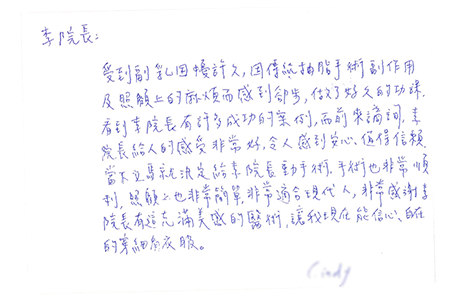 李院長:
受到副乳困擾許久,因傳統抽脂手術副作用
及照顧上的麻煩而感到卻步,做了好久的功課.
看到李院長有許多成功的案例,而前來諮詢,李
院長給人的感受非常好,令人感到安心、值得信賴,
當下立馬就決定給李院長動手術.手術也非常順
利,照顧上也非常簡單,非常適合現代人,非常感謝李
院長有這充滿美感的醫術,讓我現在能信心、自在
的穿細肩衣服。
Cindy